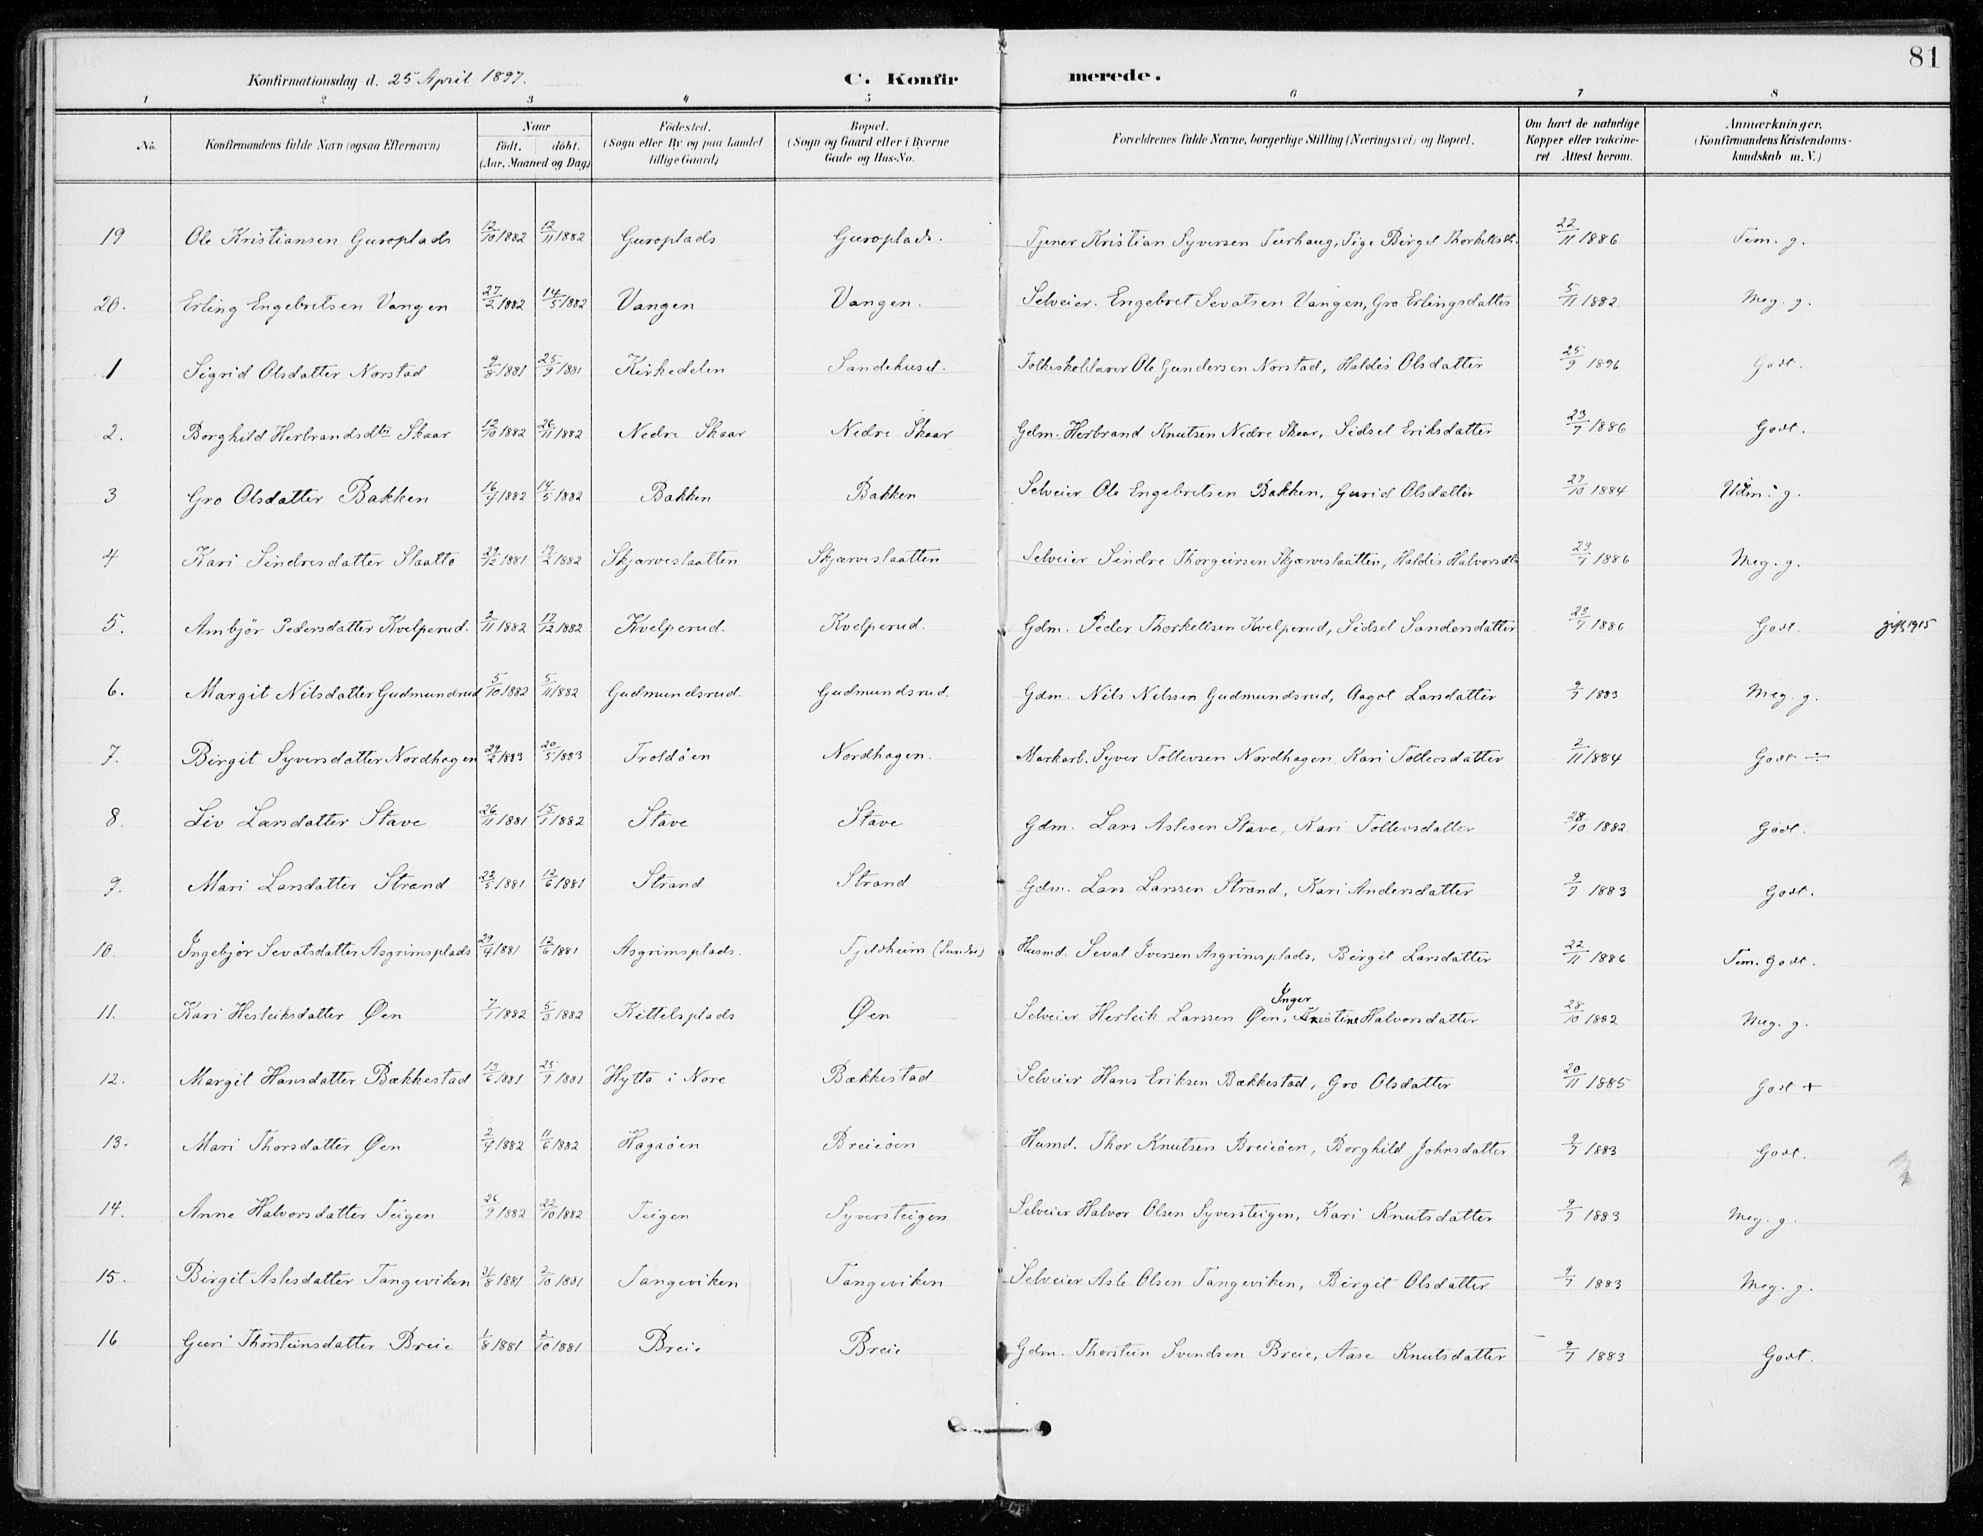 81
Konfirmationsdag d. 25 April 1897. C. Konfirmerede.
1 2 3 4 5 6 7 8
No. Konfirmandens fulde Navn (ogsaa Efternavn) Naar født. døbt. (Aar, Maaned og Dag) Fødested. (Sogn eller By og paa Landet tillige Gaard) Bopæl. (Sogn og Gaard eller i Byerne Gade og Hus-No. Forældrenes fulde Navne, borgerlige Stilling (Næringsvei) og Bopæl. Om havt de naturlige Kopper eller vakcineret Attest herom. Anmærkninger. (Konfirmandens Kristendomskundskab m. V.)
19 Ole Kristiansen Guroplads 12/10 1882 12/11 1882 Guroplads Guroplads. Tjener Kristian Syversen Turhaug, Pige Birgit Thorkelsdt. 22/11 1886 Tem. g.
20. Erling Engebretsen Vangen 27/2 1882 14/5 1882 Vangen Vangen. Selveier. Engebret Sevatsen Vangen, Gro Erlingsdatter 5/11 1882 Meg. g.
1 Sigrid Olsdatter Norstad 9/8 1881 25/9 1881 Kirkedelen Sandehuset. Folkeskolelærer Ole Gundersen Norstad, Haldis Olsdatter 25/9 1896 Godt.
2. Borghild Herbrandsdtr Skaar 12/10 1882 26/11 1882 Nedre Skaar Nedre Skaar Gdm. Herbrand Knutsen Nedre Skaar, Sidsel Eriksdatter 23/7 1886 Godt.
3 Gro Olsdatter Bakken 16/4 1882 14/5 1882 Bakken Bakken Selveier Ole Engebretsen Bakken, Gurid Olsdatter 27/10 1884 Udm. g.
4 Kari Sindresdatter Slaatto 29/12 1881 19/2 1882 Skjærveslaatten Skjærveslaatten Selveier Sindre Thorgeirsen Skjærveslaatten, Haldis Halvorsdt. 23/7 1886 Meg. g.
5. Ambjør Pedersdatter Kvelperud. 2/11 1882 17/12 1882 Kvelperud. Kvelperud. Gdm. Peder Thorkellsen Kvelperud, Sidsel Sandersdatter 23/7 1886 Godt. gift 1915
6. Margit Nilsdatter Gudmundsrud 5/10 1882 5/11 1882 Gudmundsrud. Gudmundsrud. Gdm. Nils Nilssen Gudmundsrud, Aagot Larsdatter 9/7 1883 Meg. g.
7. Birgit Syversdatter Nordhagen 29/2 1883 20/5 1883 Troldøen Nordhagen. Markarb. Syver Tollevsen Nordhagen, Kari Tollevsdatter 2/11 1884 Godt ÷
8. Liv Larsdatter Stave 26/11 1881 15/1 1882 Stave Stave Gdm. Lars Aslesen Stave, Kari Tollevsdatter 28/10 1882 Godt.
9. Mari Larsdatter Strand 22/5 1881 12/6 1881 Strand Strand Gdm. Lars Larssen Strand, Kari Andersdatter 9/7 1883 Godt.
10. Ingebjør Sevatsdatter Asgrimsplads 29/4 1881 12/6 1881 Asgrimsplads. Tjeldheim (Sundre) Husmd. Sevat Iversen Asgrimsplads, Birgit Larsdatter 22/11 1886 Tem. Godt.
11. Kari Herleiksdatter Øen 7/1 1882 5/3 1882 Kittelsplads Øen Selveier Herleik Larssen Øen, Inger Kristine Halvorsdatter 28/10 1882 Meg. g.
12. Margit Hansdatter Bækkestad 13/6 1881 25/9 1881 Hytta i Nore Bækkestad Selveier Hans Eriksen Bækkestad, Gro Olsdatter 20/11 1885 Godt +
13. Mari Thorsdatter Øen 2/4 1882 11/6 1882 Hagaøen Breieøen Husmd. Thor Knutsen Breieøen, Borghild Johnsdatter 9/7 1883 Godt.
14. Anne Halvorsdatter Teigen 26/9 1882 22/10 1882 Teigen Syversteigen Selveier Halvor Olsen Syversteigen, Kari Knutsdatter 9/7 1883 Meg. g.
15. Birgit Aslesdatter Tangeviken 31/8 1881 2/10 1881 Tangeviken Tangeviken Selveier Asle Olsen Tangeviken, Birgit Olsdatter 9/7 1883 Meg. g.
16 Guri Thorsteinsdatter Breie 1/8 1881 2/10 1881 Breie Breie Gdm. Thorstein Svendsen Breie, Aase Knutsdatter 9/7 1883 Godt.